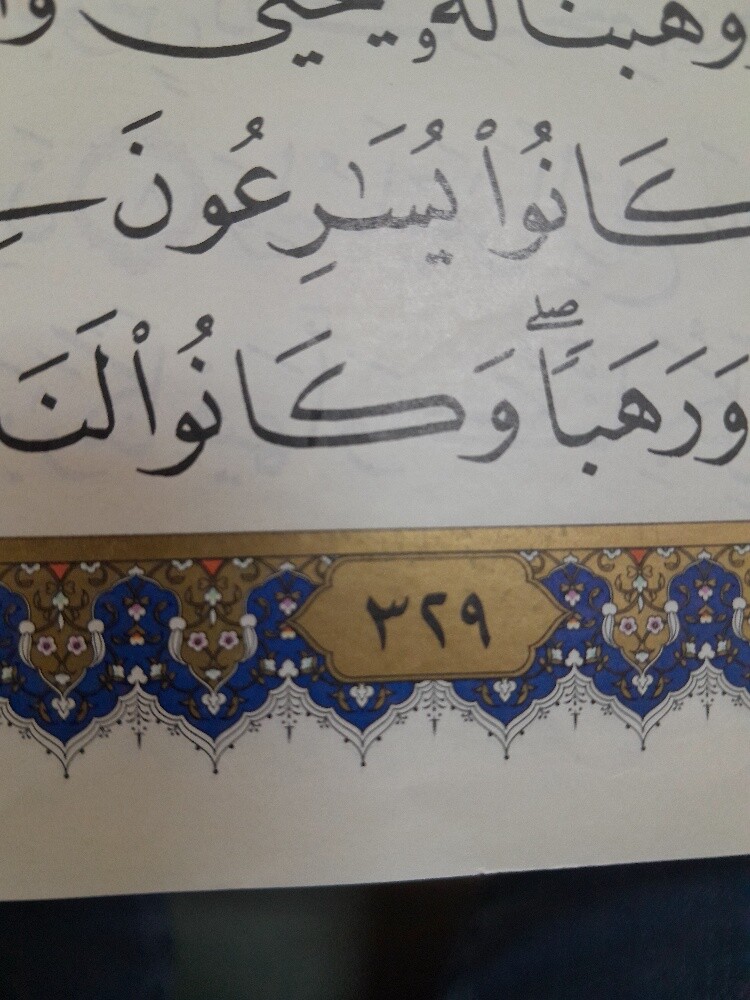 ووهبنا له و يحيى
كَانُوا۟ يُسَـٰرِعُونَ
وَرَهَبًا ۖ وَكَانُوا۟ لَنَا
٣٢٩